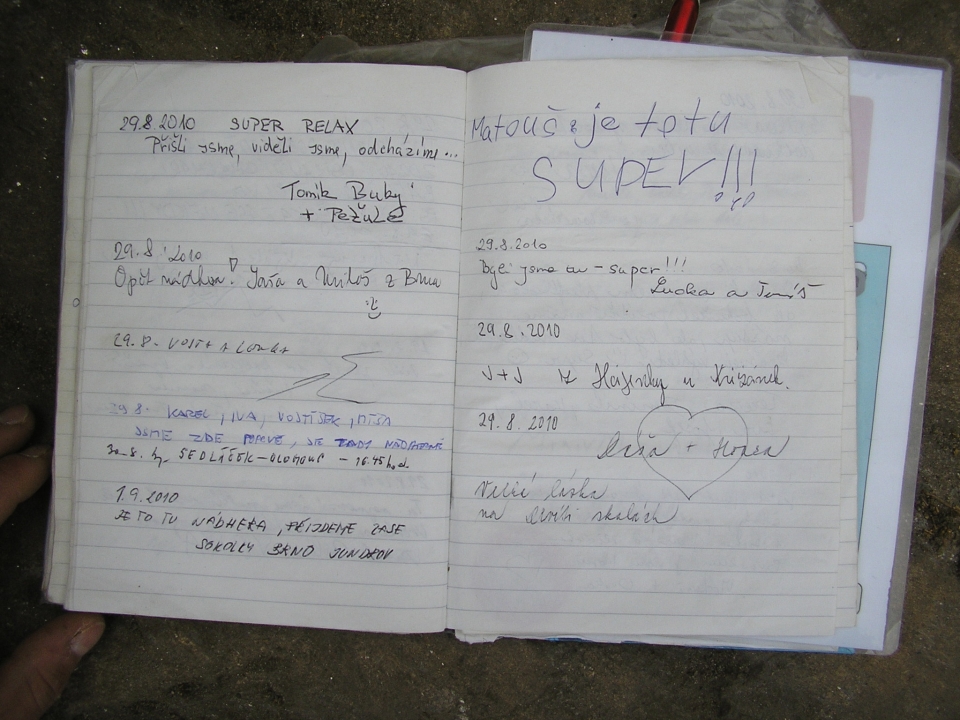 29.8.2010 SUPER RELAX
Přišli jsme, viděli jsme, odcházíme...
Tomik Buky
+ Pežule
29.8 2010
Opět nádhera! Jaša a Miloš z Brna
29.8.
29.8. KAREL, IVA, VOJTÍŠEK, MÍŠA
JSME ZDE POPRVÉ, JE TADY NÁDHERNĚ
30.8. SEDLÁČEK-OLOMOUC - 16.45 hod.
1.9.2010
JE TO TU NÁDHERA, PŘIJDEME ZASE
SOKOLKY BRNO JUNDROV
Matouš: je totu
SUPEV!!!
29.8.2010
Byli jsme tu - super!!!
Lucka a Tomáš
29.8.2010
J+J z Hájenky u Křižánek.
29.8.2010
Dáša + Honza
Velká láska
na skalách